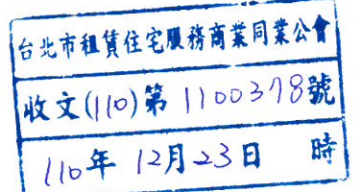 台北市租賃住宅服務商業同業公會
收文(110)第 1100378號
110年 12月23日 時